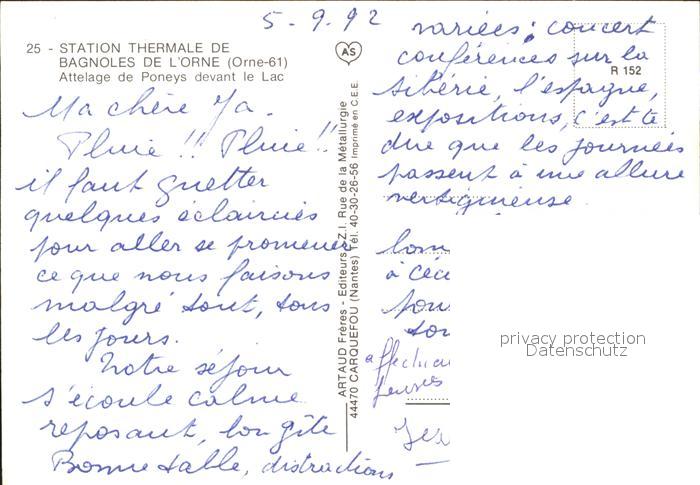 5-9-92
25 - STATION THERMALE DE
BAGNOLES DE L'ORNE (Orne-61)
Attelage de Poneys devant le Lac
Ma chère
Pluie !! Pluie !!
il faut guetter
quelques éclaircies
pour aller se promener
ce que nous faisons
malgré tout, tous
les jours.
Notre séjour
s'écoule calme
reposant, bon gîte
Bonne table, distractions
AS
ARTAUD Frères - Editeurs - Z.I. Rue de la Métallurgie
44470 CARQUEFOU (Nantes) Tél. 40-30-26-56 Imprimé en C.E.E.
variées : concert
conférences sur la
R 152
sibérie, l'espagne,
expositions, c'est te
dire que les journées
passent à une allure
vertigineuse
à
privacy protection
Datenschutz